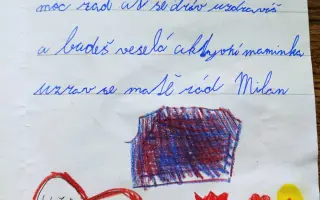 moc rád ať se dráv uzdravíš
a budeš veselá maminka
uzrav se má tě rád Milan